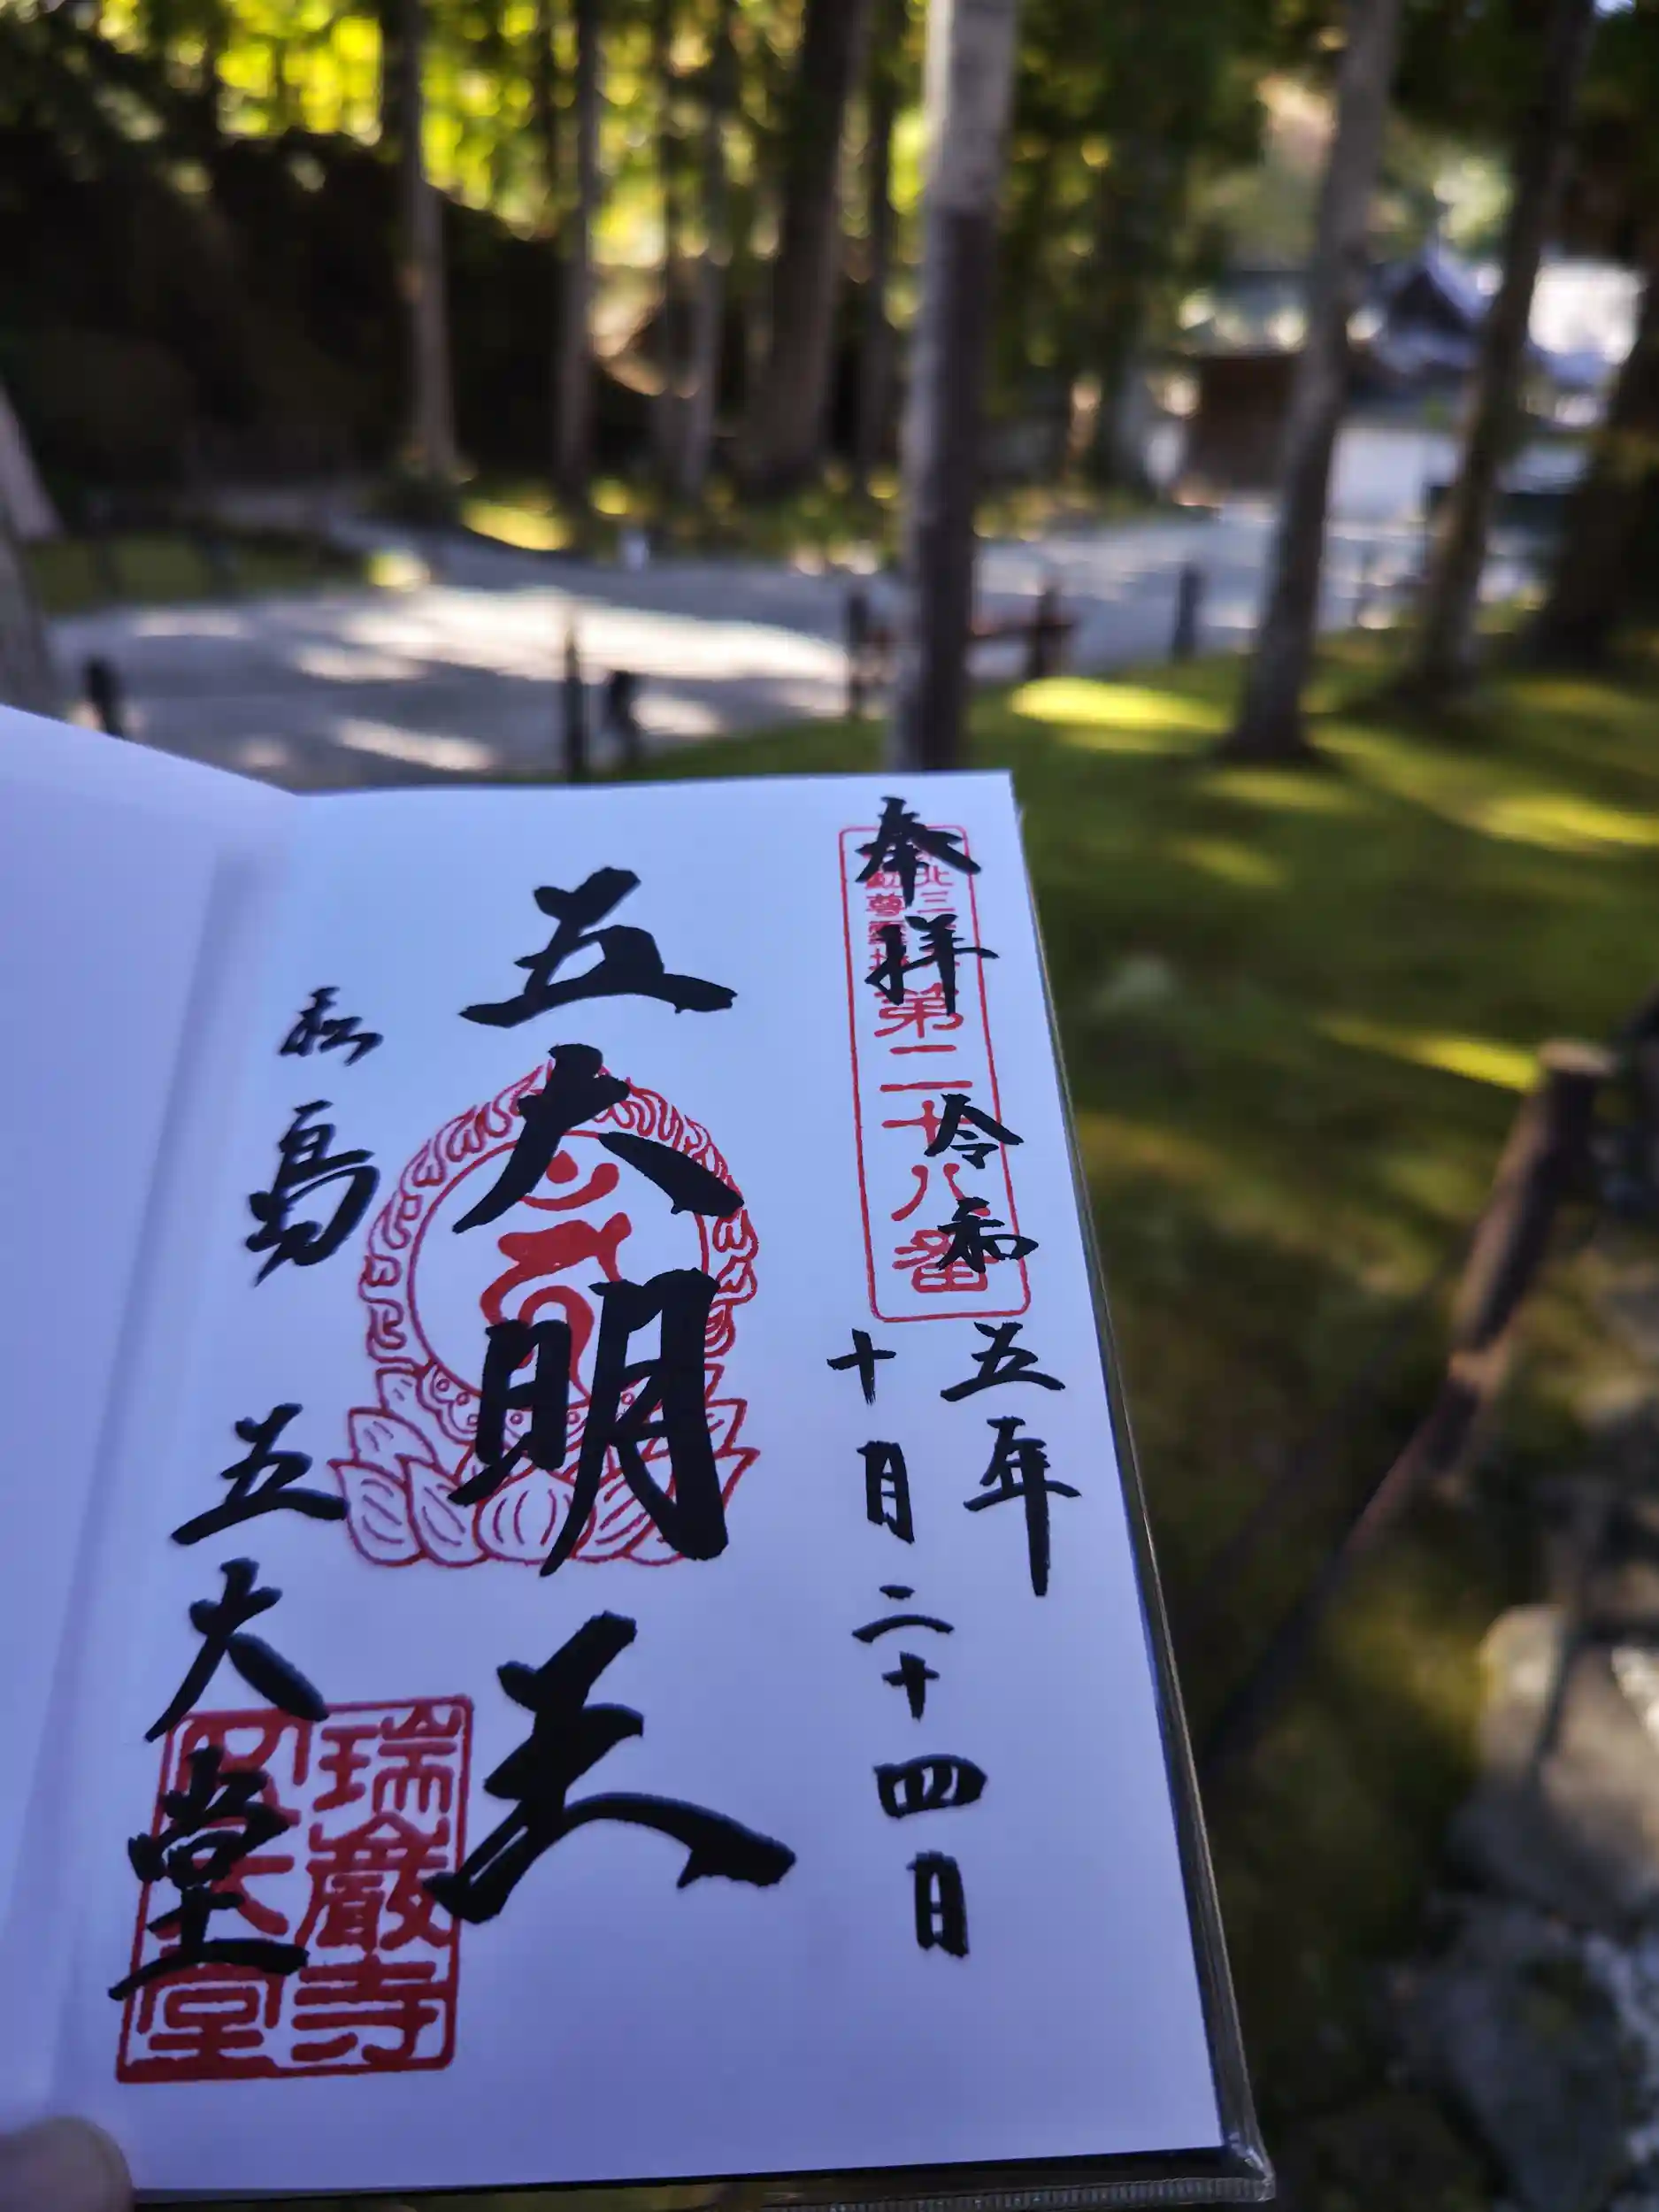 奉拝
北三
第二十八番
令和五年
十月二十四日
五大明王
松島
五大堂
瑞巌寺
五大堂